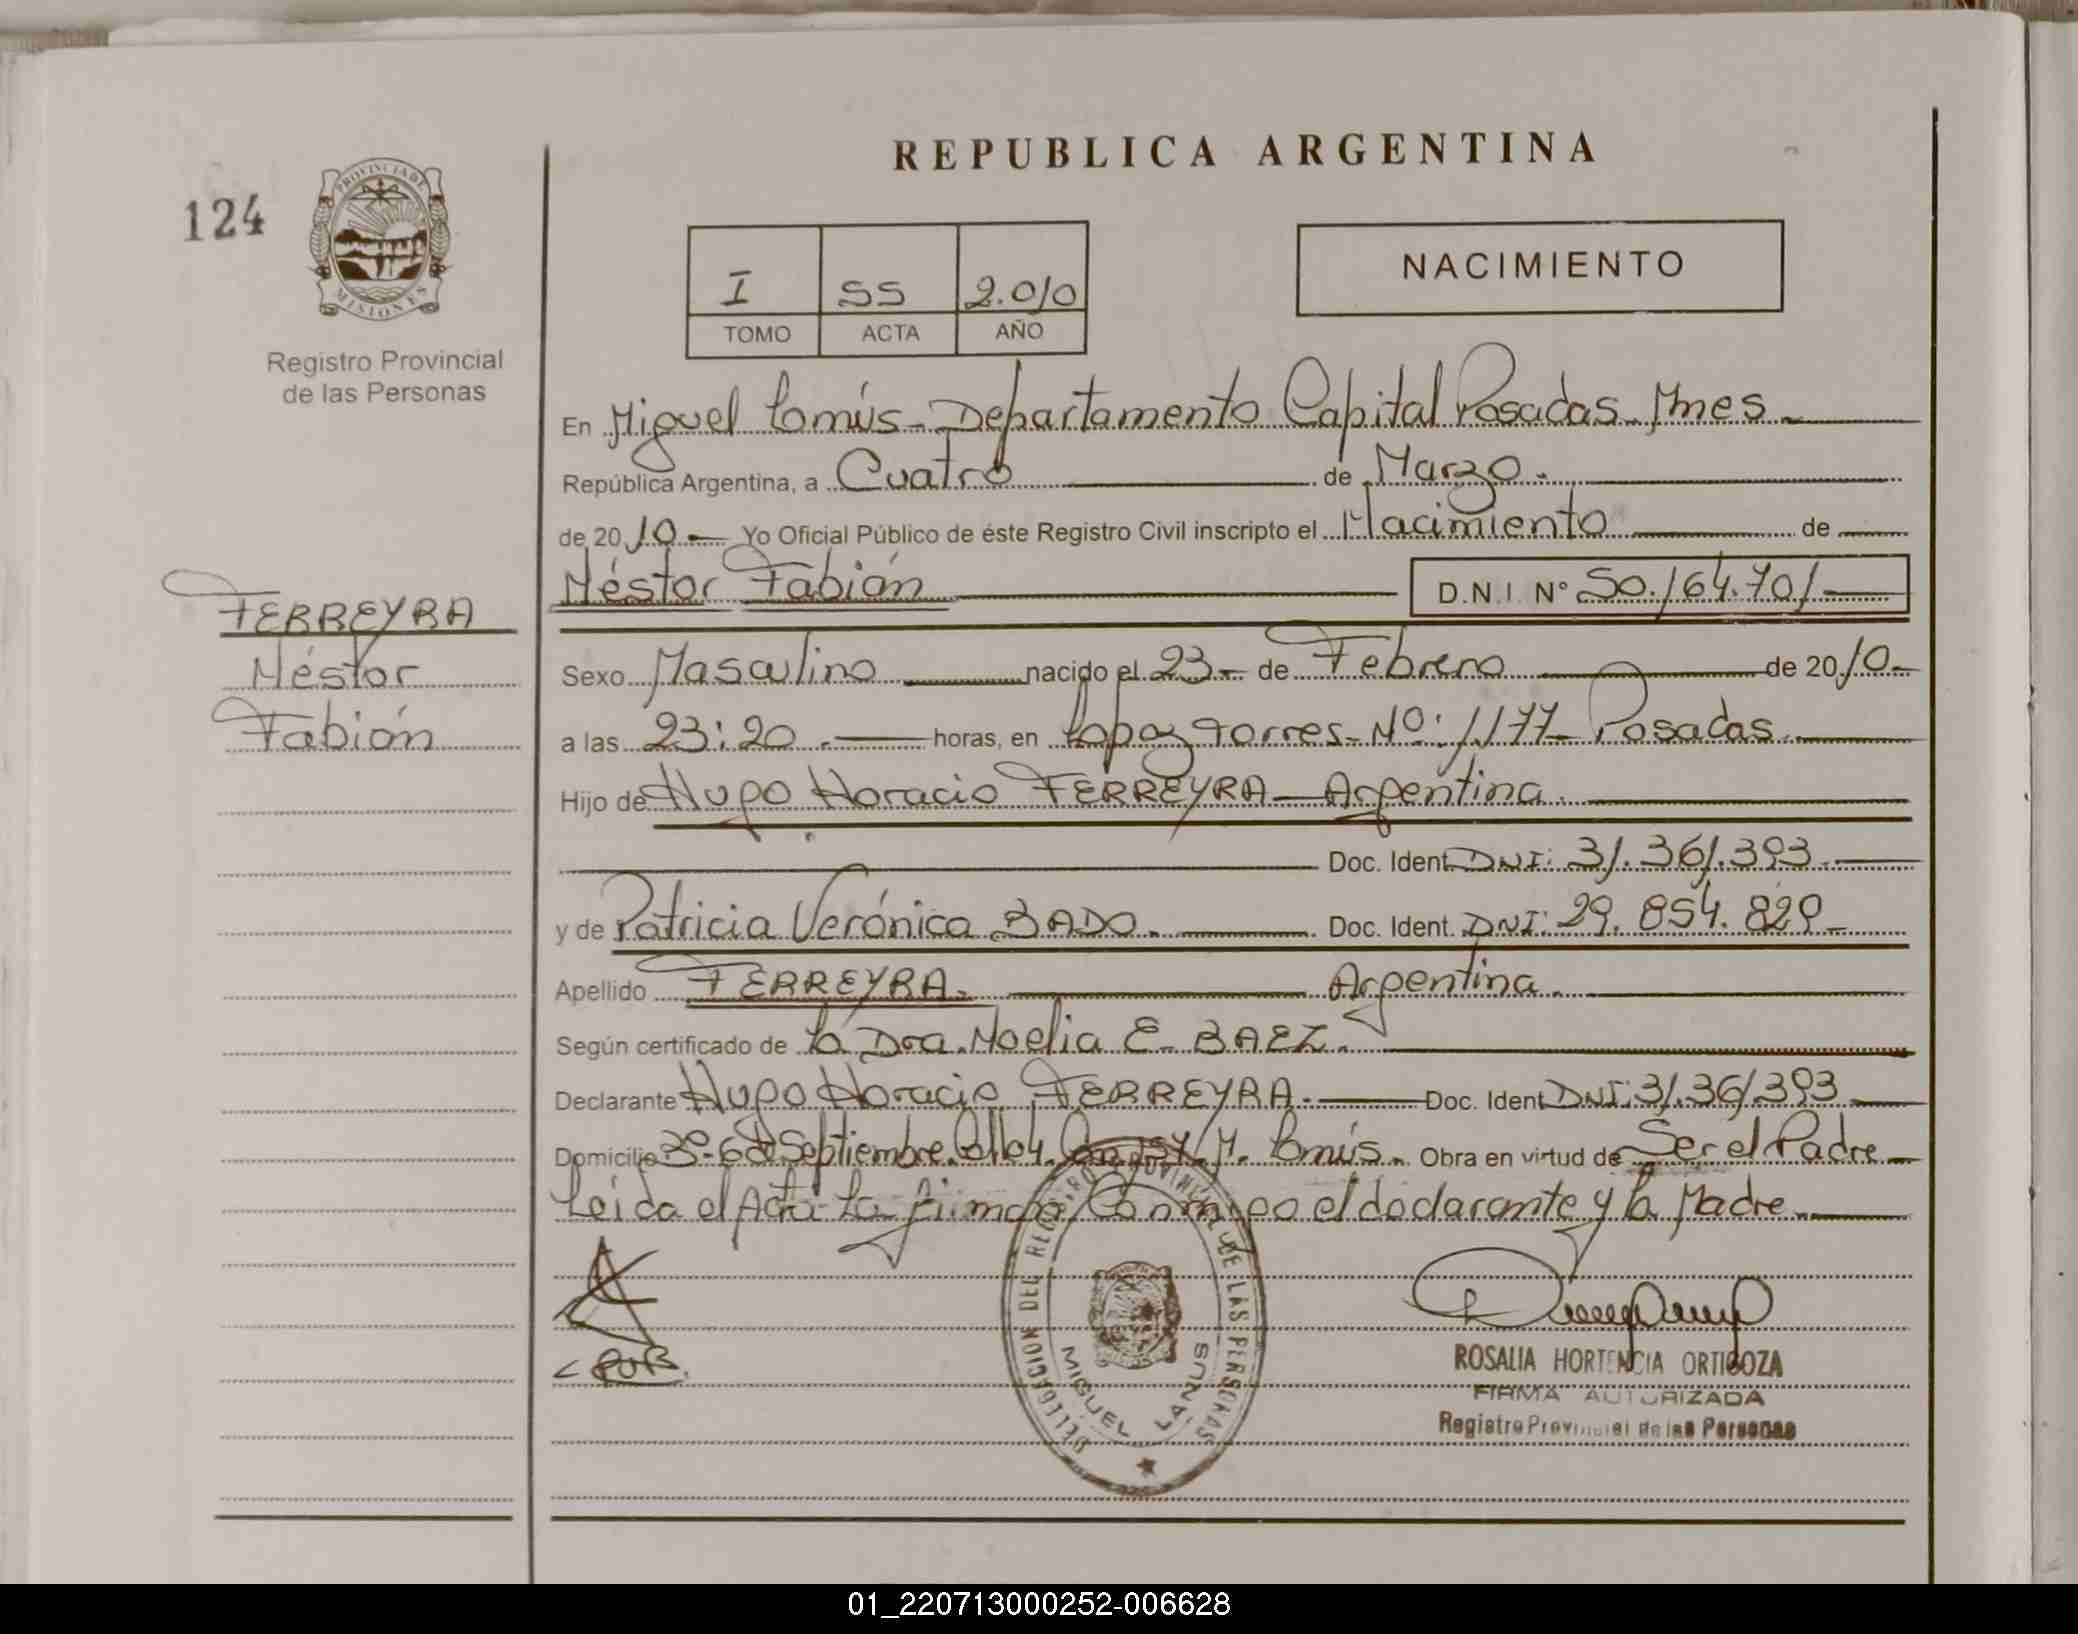 REPUBLICA ARGENTINA
124
PROVINCIA DE
MISIONES
Registro Provincial
de las Personas
I 55 2.010
TOMO ACTA AÑO
NACIMIENTO
En Miguel Lanús - Departamento Capital Posadas. Mnes
República Argentina, a Cuatro de Marzo.
de 2010 Yo Oficial Público de éste Registro Civil inscripto el Nacimiento de
Néstor Fabián D.N.I. Nº 50.164.701
FERREYRA
Néstor
Fabián
Sexo Masculino nacido el 23 de Febrero de 2010
a las 23:20 horas, en Lopez Torres - Nº: 1177 - Posadas
Hijo de Hugo Horacio FERREYRA - Argentina.
Doc. Ident. DNI: 31.361.393
y de Patricia Verónica BADO. Doc. Ident. DNI: 29.854.829
Apellido FERREYRA. Argentina.
Según certificado de la Dra. Noelia E. BAEZ.
Declarante Hugo Horacio FERREYRA. Doc. Ident DNI: 31.361.393
Domicilio 6 de Septiembre. M. Lanús. Obra en virtud de Ser el Padre
Leída el Acta La firman Conmigo el declarante y la Madre
DELEGACION DEL REGISTRO PROVINCIAL DE LAS PERSONAS
MIGUEL LANUS
ROSALIA HORTENCIA ORTIGOZA
FIRMA AUTORIZADA
Registro Provincial de las Personas
01_220713000252-006628